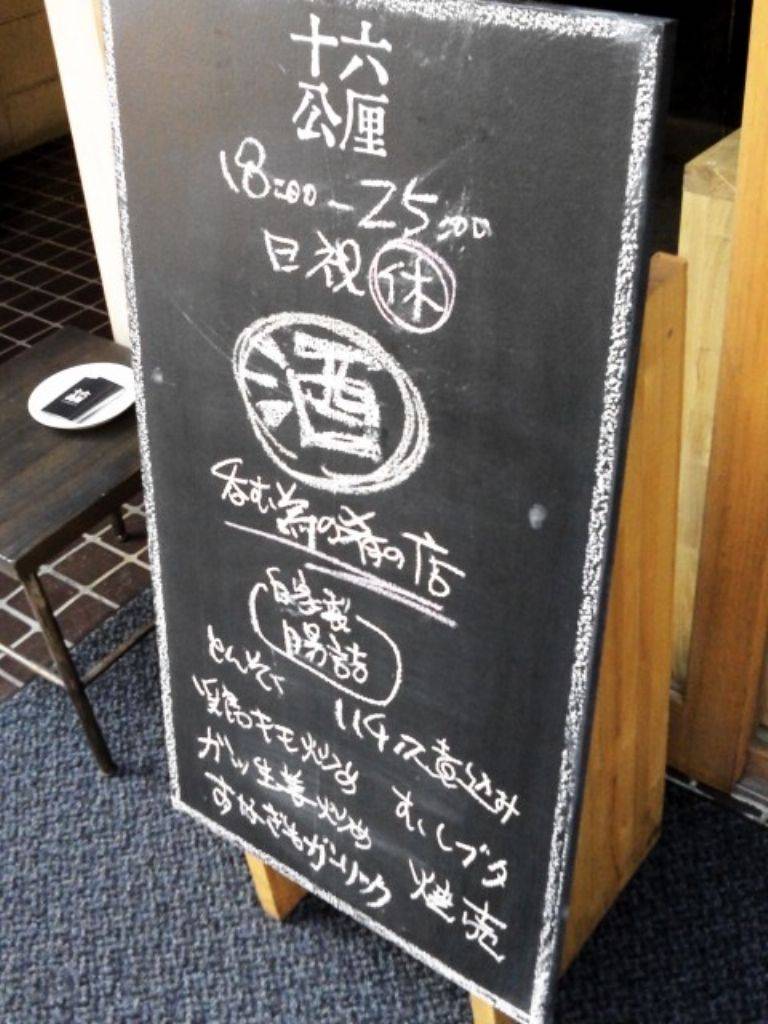 十六
公厘
18:00-25:00
日祝休
酒
呑む為の肴の店
自家製
腸詰
とんそく
鶏キモ炒め
ガツ生姜炒め
すなぎもガーリック
ハチノス煮込み
むしブタ
焼売